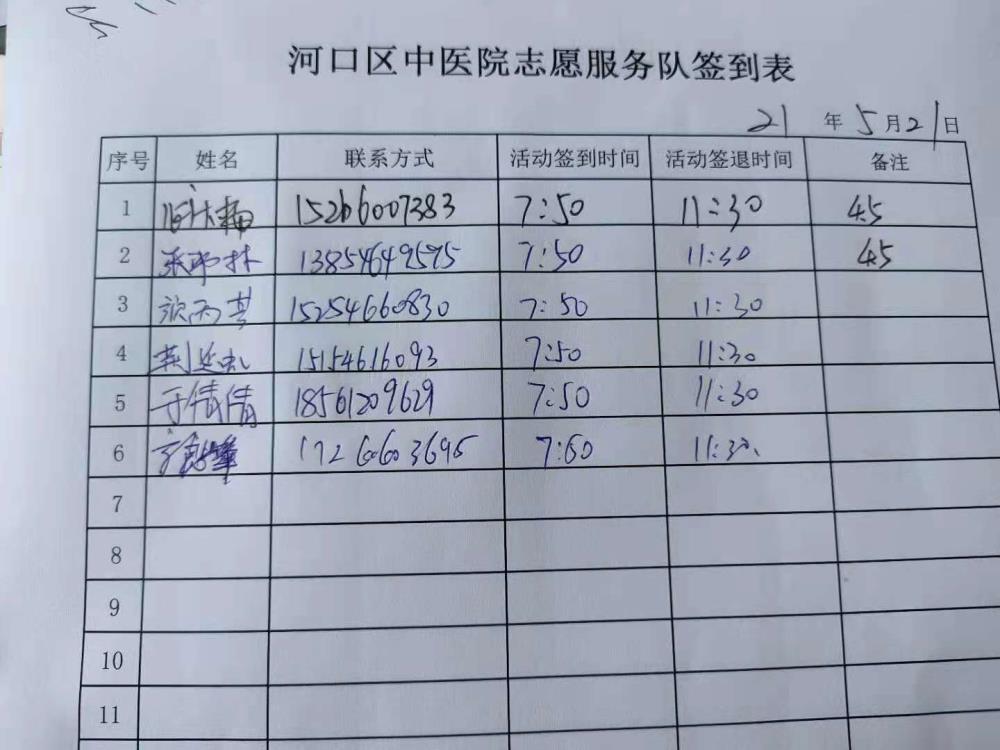 河口区中医院志愿服务队签到表
21 年 5 月 21 日
序号 姓名 联系方式 活动签到时间 活动签退时间 备注
1 15266007383 7:50 11:30 45
2 13854649595 7:50 11:30 45
3 15254660830 7:50 11:30
4 15154616093 7:50 11:30
5 于倩倩 18561209629 7:50 11:30
6 17266603695 7:50 11:30
7
8
9
10
11